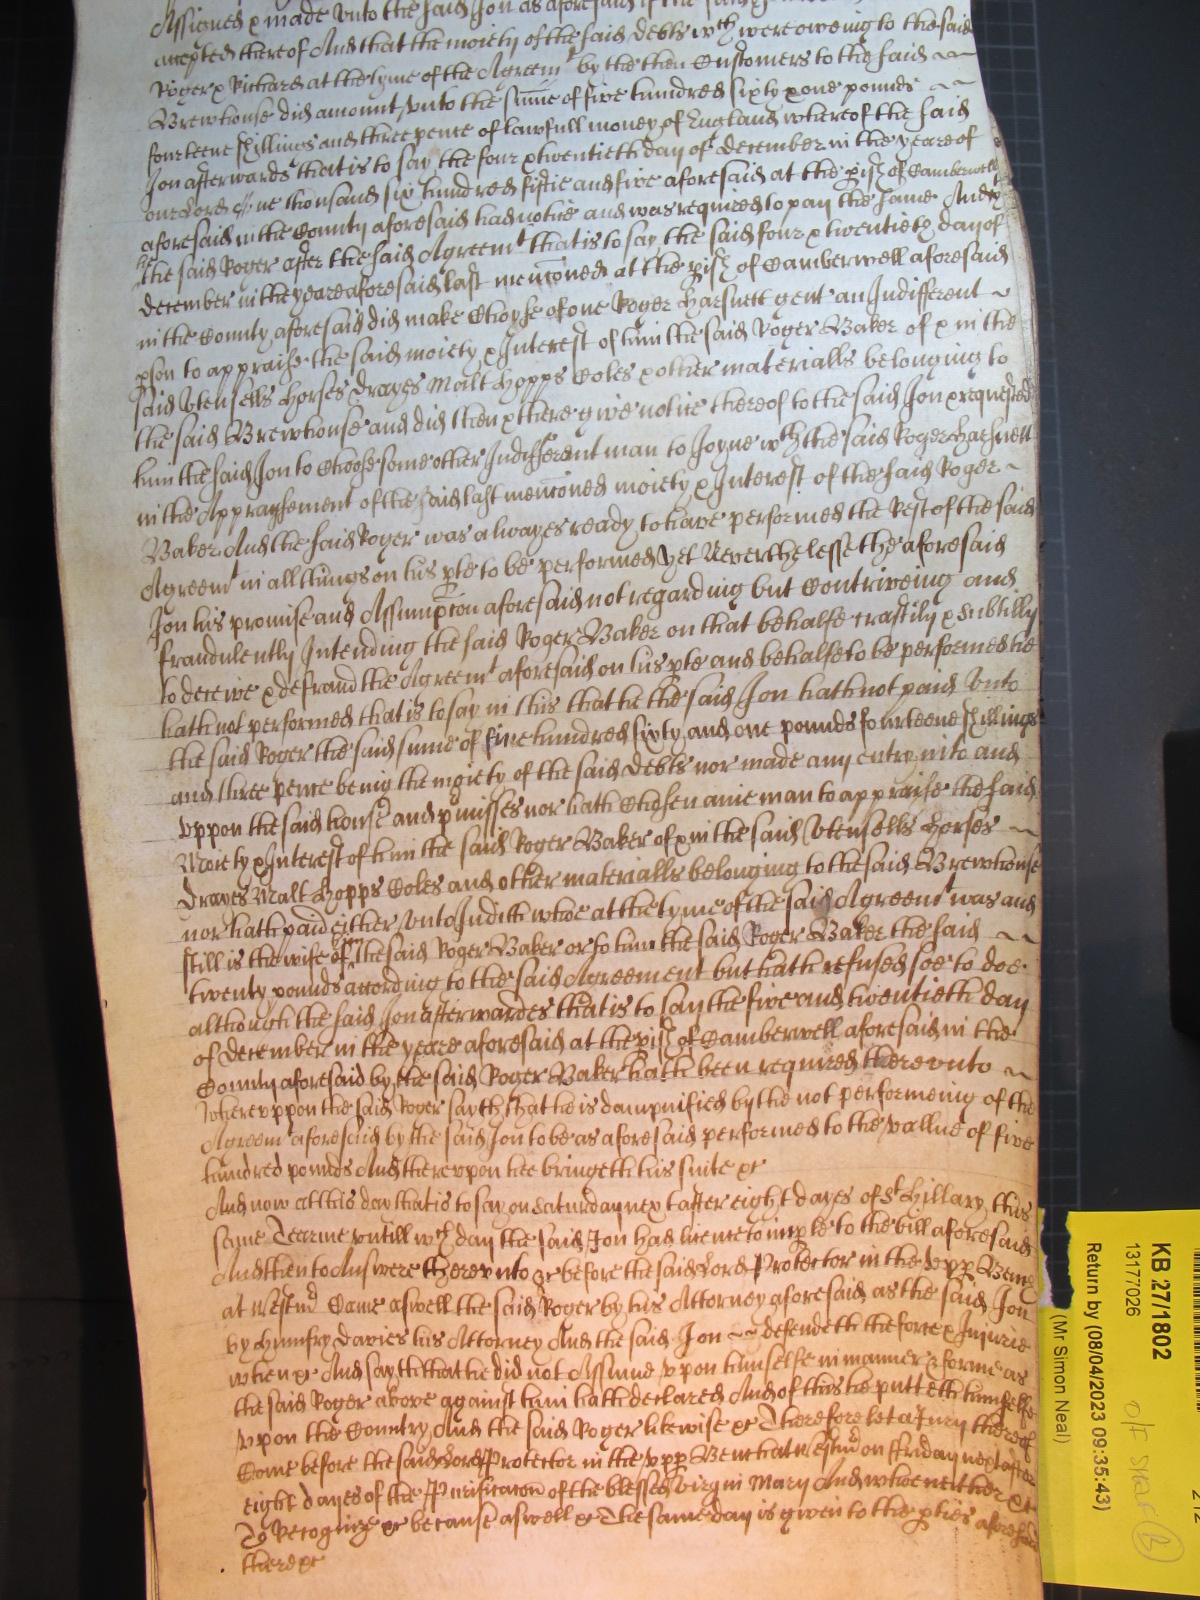 Assigned & made unto the said Jon as aforesaid if the said
accepted thereof And that the moiety of the said debts wch were oweing to the said
Roger & Richard at the tyme of the Agreemt by the then Customers to the said
Brewhouse did amount unto the sume of five hundred sixty & one pounds
fourteene shillings and three pence of lawfull money of England whereof the said
Jon afterwards that is to say the four & twentieth day of December in the yeare of
our Lord One thousand six hundred fiftie and five aforesaid at the pish of Camberwell
aforesaid in the County aforesaid had notice and was required to pay the same And
the said Roger after the said Agreemt that is to say the said four & twentieth day of
December in the yeare aforesaid last mencioned at the pish of Camberwell aforesaid
in the County aforesaid did make Choyse of one Roger Harsnett gent an Indifferent
pson to appraise the said moiety & Interest of him the said Roger Baker of & in the
said Utensells Horses Drayes Malt Hopps Coles & other materialls belonging to
the said Brewhouse and did then & there give notice thereof to the said Jon & requested
him the said Jon to Choose some other Indifferent man to Joyne wth the said Roger Harsnett
in the Appraysement of the said last mencioned moiety & Interest of the said Roger
Baker And the said Roger was alwayes ready to have performed the Rest of the said
Agreemt in all things on his pte to be performed Yet Neverthelesse the aforesaid
Jon his promise and Assumpcon aforesaid not regarding but Contriveing and
fraudulently Intending the said Roger Baker on that behalfe craftily & subtilly
to deceive & defraud the Agreemt aforesaid on his pte and behalfe to be performed he
hath not performed that is to say in this that he the said Jon hath not paid unto
the said Roger the said sume of five hundred sixty and one pounds fourteene shillings
and three pence being the moiety of the said debts nor made any entry into and
uppon the said house and pmisses nor hath Chosen anie man to appraise the said
Moiety & Interest of him the said Roger Baker of & in the said Utensells Horses
Drayes Malt Hopps Coles and other materialls belonging to the said Brewhouse
nor hath paid either unto Judith whoe at the tyme of the said Agreemt was and
still is the wife of the said Roger Baker or to him the said Roger Baker the said
twenty pounds according to the said Agreement but hath refused soe to doe
although the said Jon afterwardes that is to say the five and twentieth day
of December in the yeare aforesaid at the pish of Camberwell aforesaid in the
County aforesaid by the said Roger Baker hath been required thereunto
Whereuppon the said Roger sayth that he is dampnified by the not performeing of the
Agreemt aforesaid by the said Jon to be as aforesaid performed to the vallue of five
hundred pounds And thereupon hee bringeth his suite &c
And now at this day that is to say on Saturday next after eight dayes of St Hillary this
same Tearme untill wch day the said Jon had licence to imple to the bill aforesaid
And then to Answere thereunto &c before the said Lord Protector in the Upp Bench
at Westmr Came aswell the said Roger by his Attorney aforesaid as the said Jon
by Humfry Davies his Attorney And the said Jon defendeth the force & Injurie
when &c And sayth that he did not Assume upon himselfe in manner & forme as
the said Roger above against him hath declared And of this he putteth himselfe
upon the Country And the said Roger likewise &c Therefore let a Jury thereof
Come before the said Lord Protector in the Upp Bench at Westmr on Friday next after
eight dayes of the Purificacon of the blessed Virgin Mary And whoe neither &c
To Recognize &c because aswell &c The same day is given to the pties aforesaid
there &c
KB 27/1802
13177026
Return by (08/04/2023 09:35:43)
(Mr Simon Neal)